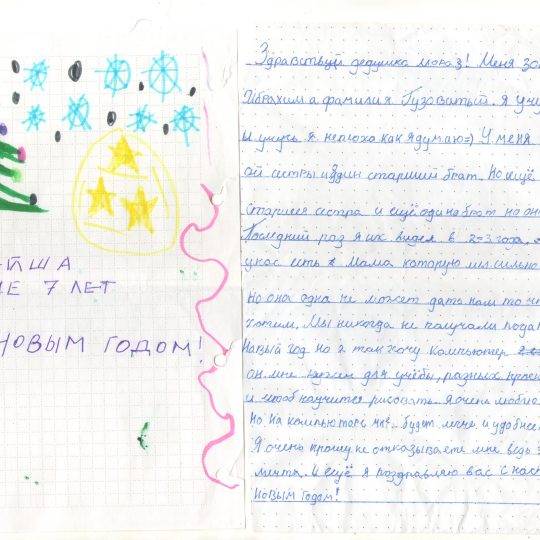 ЙША
Е 7 ЛЕТ
НОВЫМ ГОДОМ!
Здравствуй дедушка мораз! Меня зо
Ибрахим а фамилия Гузоватый. Я учу
И учусь я неплоха как я думаю=) У меня
ой сестры и один старший брат. Но ещё
Старшея сестра и ещё один абрат но он
Последний раз я их видел в 2=3 года,
унас есть Мама которую мы сильно
Но она одна не может дать нам то
хотим. Мы никогда не получали пода
Новый год но я так хочу компьютер
он мне нужен для учёбы, разных
и чтоб научится рисовать. Я очень
но на компьторе мне будет легче и удобнее
Я очень прошу не отказываете мне ведь э
мечта. И ещё я поздравляю вас с нас
новым годом!